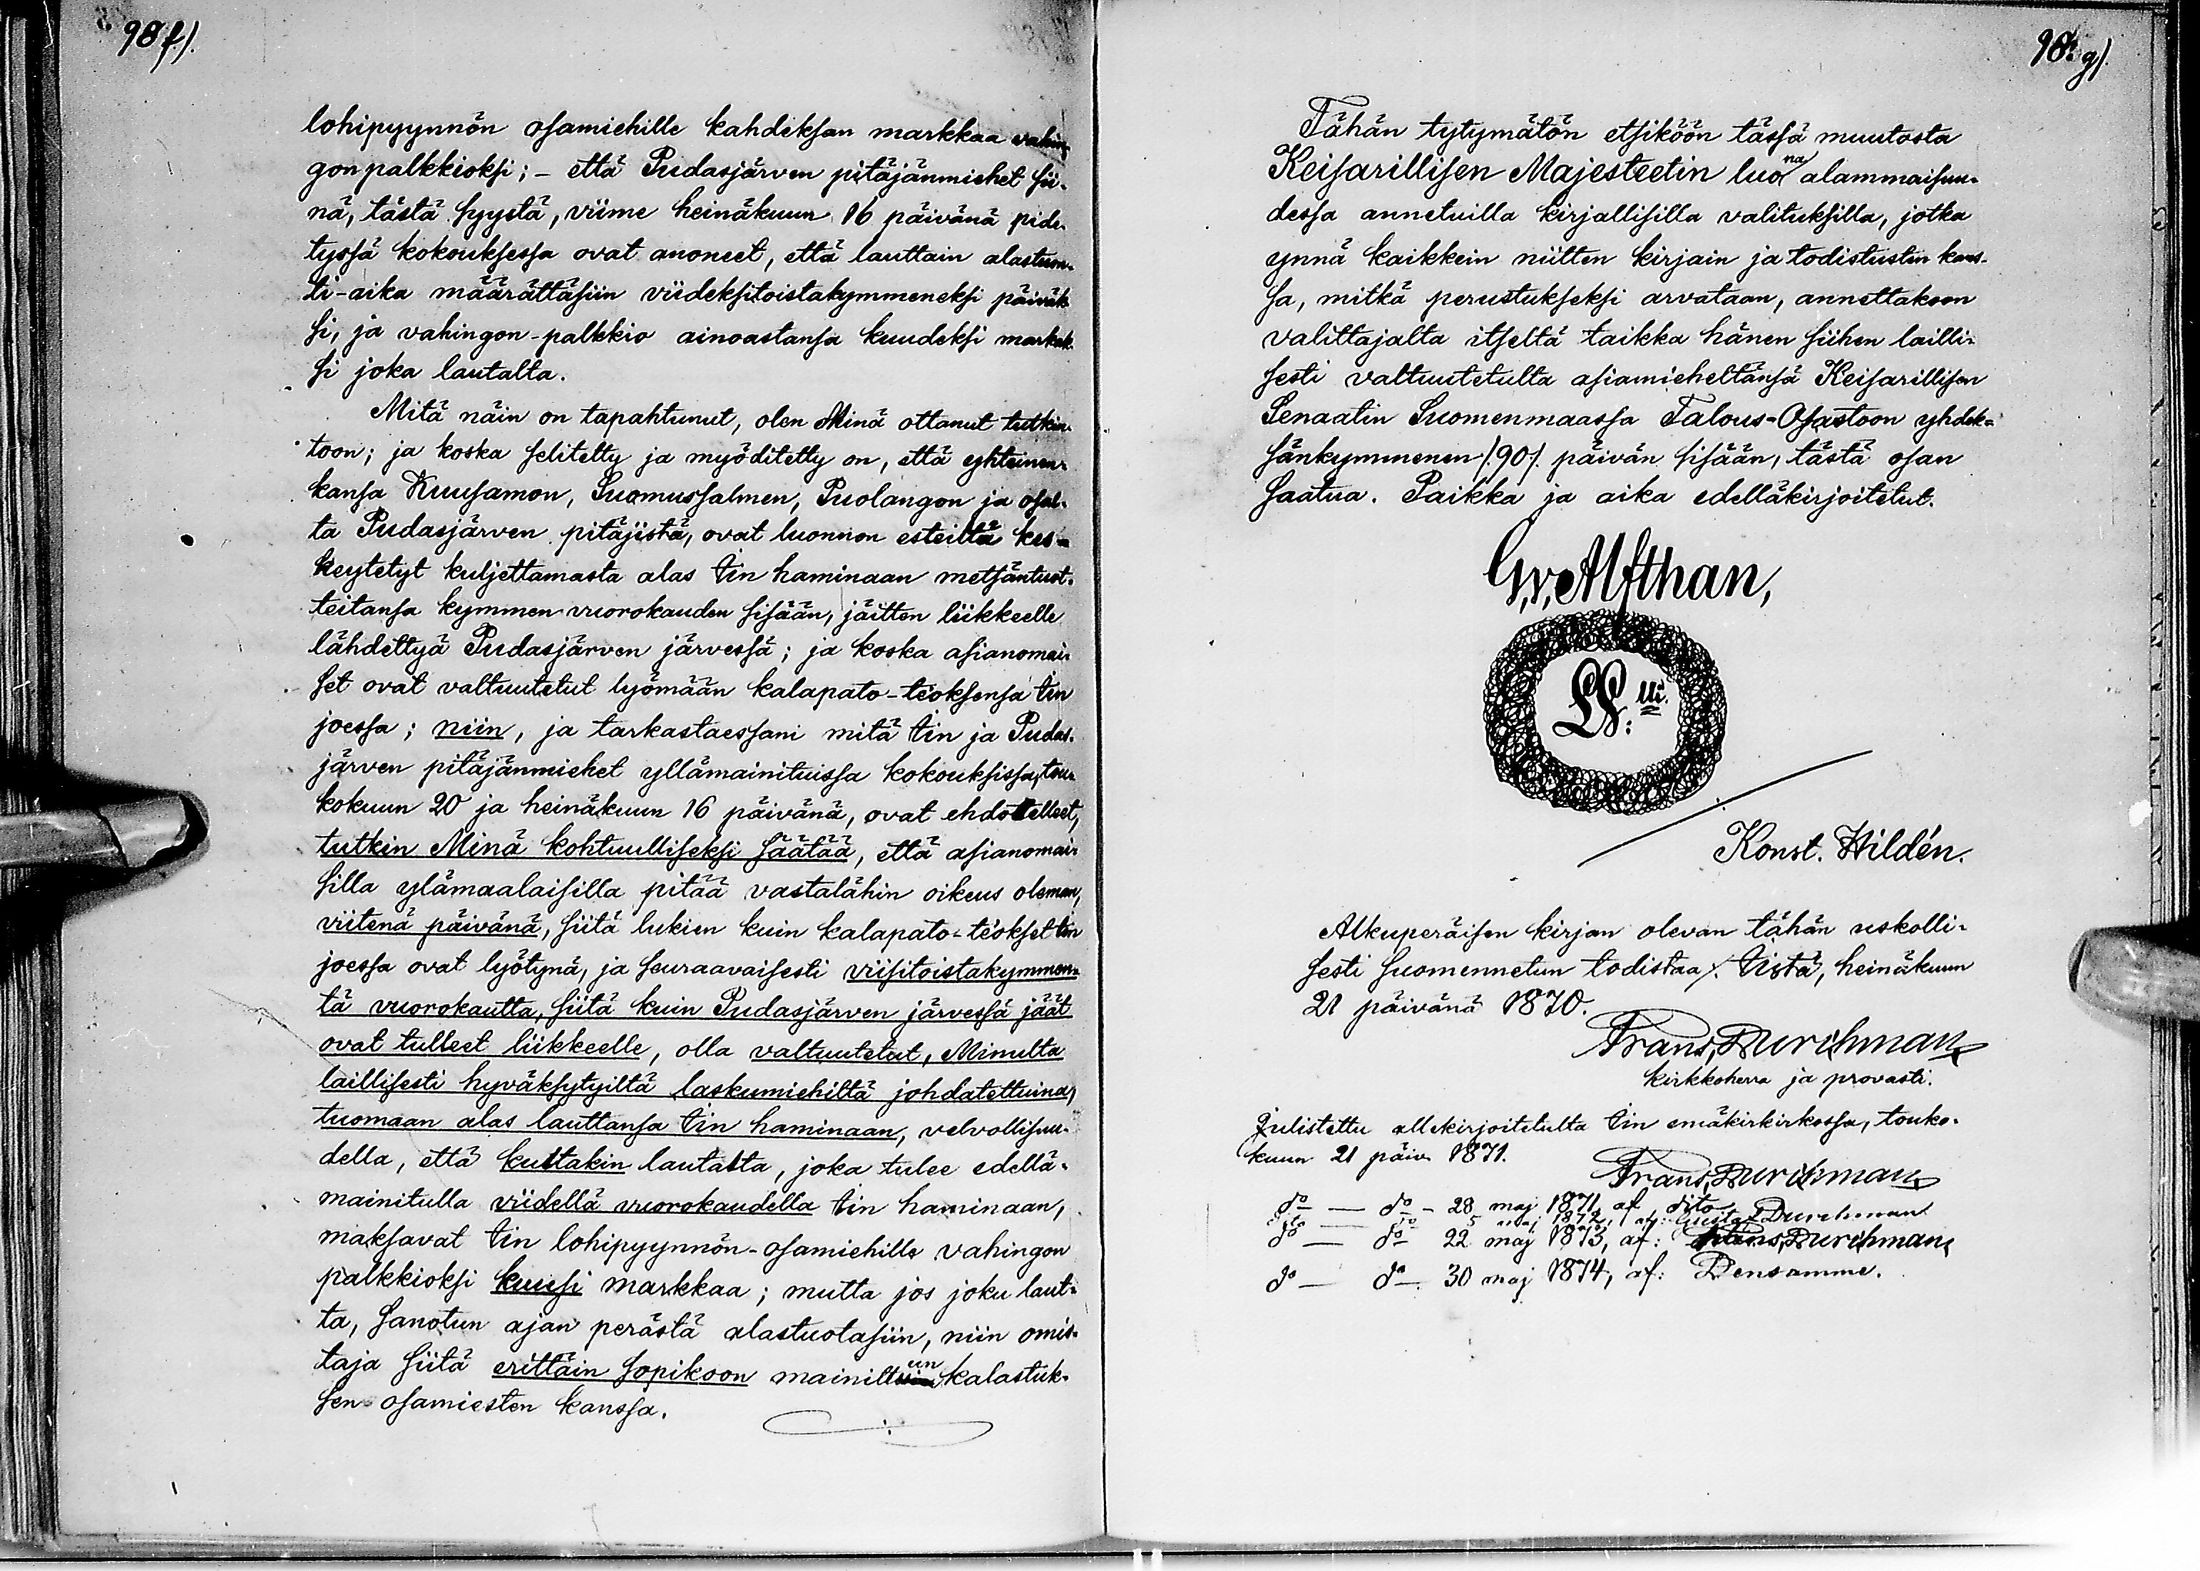 98 f).
lohipyynnön osamiehille kahdeksan markkaa vahin-
gon palkkioksi; - että Pudasjärven pitäjänmiehet sii-
nä, tästä syystä, viime heinäkuun 16 päivänä pide-
tyssä kokouksessa ovat anoneet, että lauttain alastuon-
ti-aika määrättäsiin viideksitoistakymmeneksi päiväk-
si, ja vahingon-palkkio ainoastansa kuudeksi markak-
si joka lautalta.
Mitä näin on tapahtunut, olen Minä ottanut tutkin-
toon; ja koska selitelty ja myöditetty on, että yhteinen-
kansa Kuusamon, Suomussalmen, Puolangon ja osal-
ta Pudasjärven pitäjistä, ovat luonnon esteiltä kes-
keytetyt kuljettamasta alas Iin haminaan metsäntuot-
teitansa kymmen vuorokauden sisään, jäitten liikkeelle
lähdettyä Pudasjärven järvessä; ja koska asianomai-
set ovat valtuutetut lyömään kalapato-teoksensa Iin
joessa; niin, ja tarkastaessani mitä Iin ja Pudas-
järven pitäjänmiehet yllämainituissa kokouksissa, tou-
kokuun 20 ja heinäkuun 16 päivänä, ovat ehdotelleet,
tutkin Minä kohtuulliseksi säätää, että asianomai-
silla ylämaalaisilla pitää vastalähin oikeus oleman,
viitenä päivänä, siitä lukien kuin kalapato-teokset Iin
joessa ovat lyötynä, ja seuraavaisesti viisitoistakymmen-
tä vuorokautta, siitä kuin Pudasjärven järvessä jäät
ovat tulleet liikkeelle, olla valtuutetut, Minulta
laillisesti hyväksytyiltä laskumiehiltä johdatettuina,
tuomaan alas lauttansa Iin haminaan, velvollisuu-
della, että kultakin lautalta, joka tulee edellä-
mainitulla viidellä vuorokaudella Iin haminaan,
maksavat Iin lohipyynnön-osamiehille vahingon
palkkioksi kuusi markkaa; mutta jos joku laut-
ta, sanotun ajan perästä alastuotasiin, niin omis-
taja siitä erittäin sopikoon mainittuun kalastuk-
sen osamiesten kanssa.
98. g).
Tähän tytymätön etsiköön tässä muutosta
Keisarillisen Majesteetin luona alammaisuu-
dessa annetuilla kirjallisilla valituksilla, jotka
ynnä kaikkein niitten kirjain ja todistustin kans-
sa, mitkä perustukseksi arvataan, annettakoon
valittajalta itseltä taikka hänen siihen lailli-
sesti valtuutetulta asiamieheltänsä Keisarillisen
Senaatin Suomenmaassa Talous-Osastoon yhdek-
sänkymmenen /:90/: päivän sisään, tästä osan
saatua. Paikka ja aika edelläkirjoitetut.
G. v. Alfthan,
LS:
Konst. Hildén.
Alkuperäisen kirjan olevan tähän uskolli-
sesti suomennetun todistaa /: Iistä, heinäkuun
21 päivänä 1870.
Frans, Durchman
kirkkoherra ja provasti.
Julistettu allekirjoitetulta Iin emäkirkirkossa, touko-
kuun 21 päiv. 1871.
Frans, Durchman
do — do - 28 maj 1871, af dito.
do — do 5 maj 1872, af: Gustaf Durchman
do — do 22 maj 1873, af: Frans, Durchman
do — do 30 maj 1874, af: Densamme.